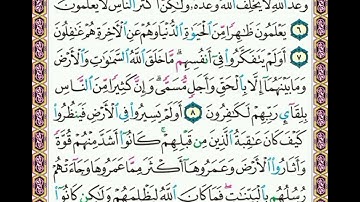 وَعْدَ ٱللَّهِ لَا يُخْلِفُ ٱللَّهُ وَعْدَهُۥ وَلَٰكِنَّ أَكْثَرَ ٱلنَّاسِ لَا يَعْلَمُونَ
٦ يَعْلَمُونَ ظَٰهِرًا مِّنَ ٱلْحَيَوٰةِ ٱلدُّنْيَا وَهُمْ عَنِ ٱلْءَاخِرَةِ هُمْ غَٰفِلُونَ
٧ أَوَلَمْ يَتَفَكَّرُوا۟ فِىٓ أَنفُسِهِم ۗ مَّا خَلَقَ ٱللَّهُ ٱلسَّمَٰوَٰتِ وَٱلْأَرْضَ
وَمَا بَيْنَهُمَآ إِلَّا بِٱلْحَقِّ وَأَجَلٍ مُّسَمًّى ۗ وَإِنَّ كَثِيرًا مِّنَ ٱلنَّاسِ
بِلِقَآئِ رَبِّهِمْ لَكَٰفِرُونَ ٨ أَوَلَمْ يَسِيرُوا۟ فِى ٱلْأَرْضِ فَيَنظُرُوا۟
كَيْفَ كَانَ عَٰقِبَةُ ٱلَّذِينَ مِن قَبْلِهِمْ ۚ كَانُوٓا۟ أَشَدَّ مِنْهُمْ قُوَّةً
وَأَثَارُوا۟ ٱلْأَرْضَ وَعَمَرُوهَآ أَكْثَرَ مِمَّا عَمَرُوهَا وَجَآءَتْهُمْ
رُسُلُهُم بِٱلْبَيِّنَٰتِ ۖ فَمَا كَانَ ٱللَّهُ لِيَظْلِمَهُمْ وَلَٰكِن كَانُوٓا۟